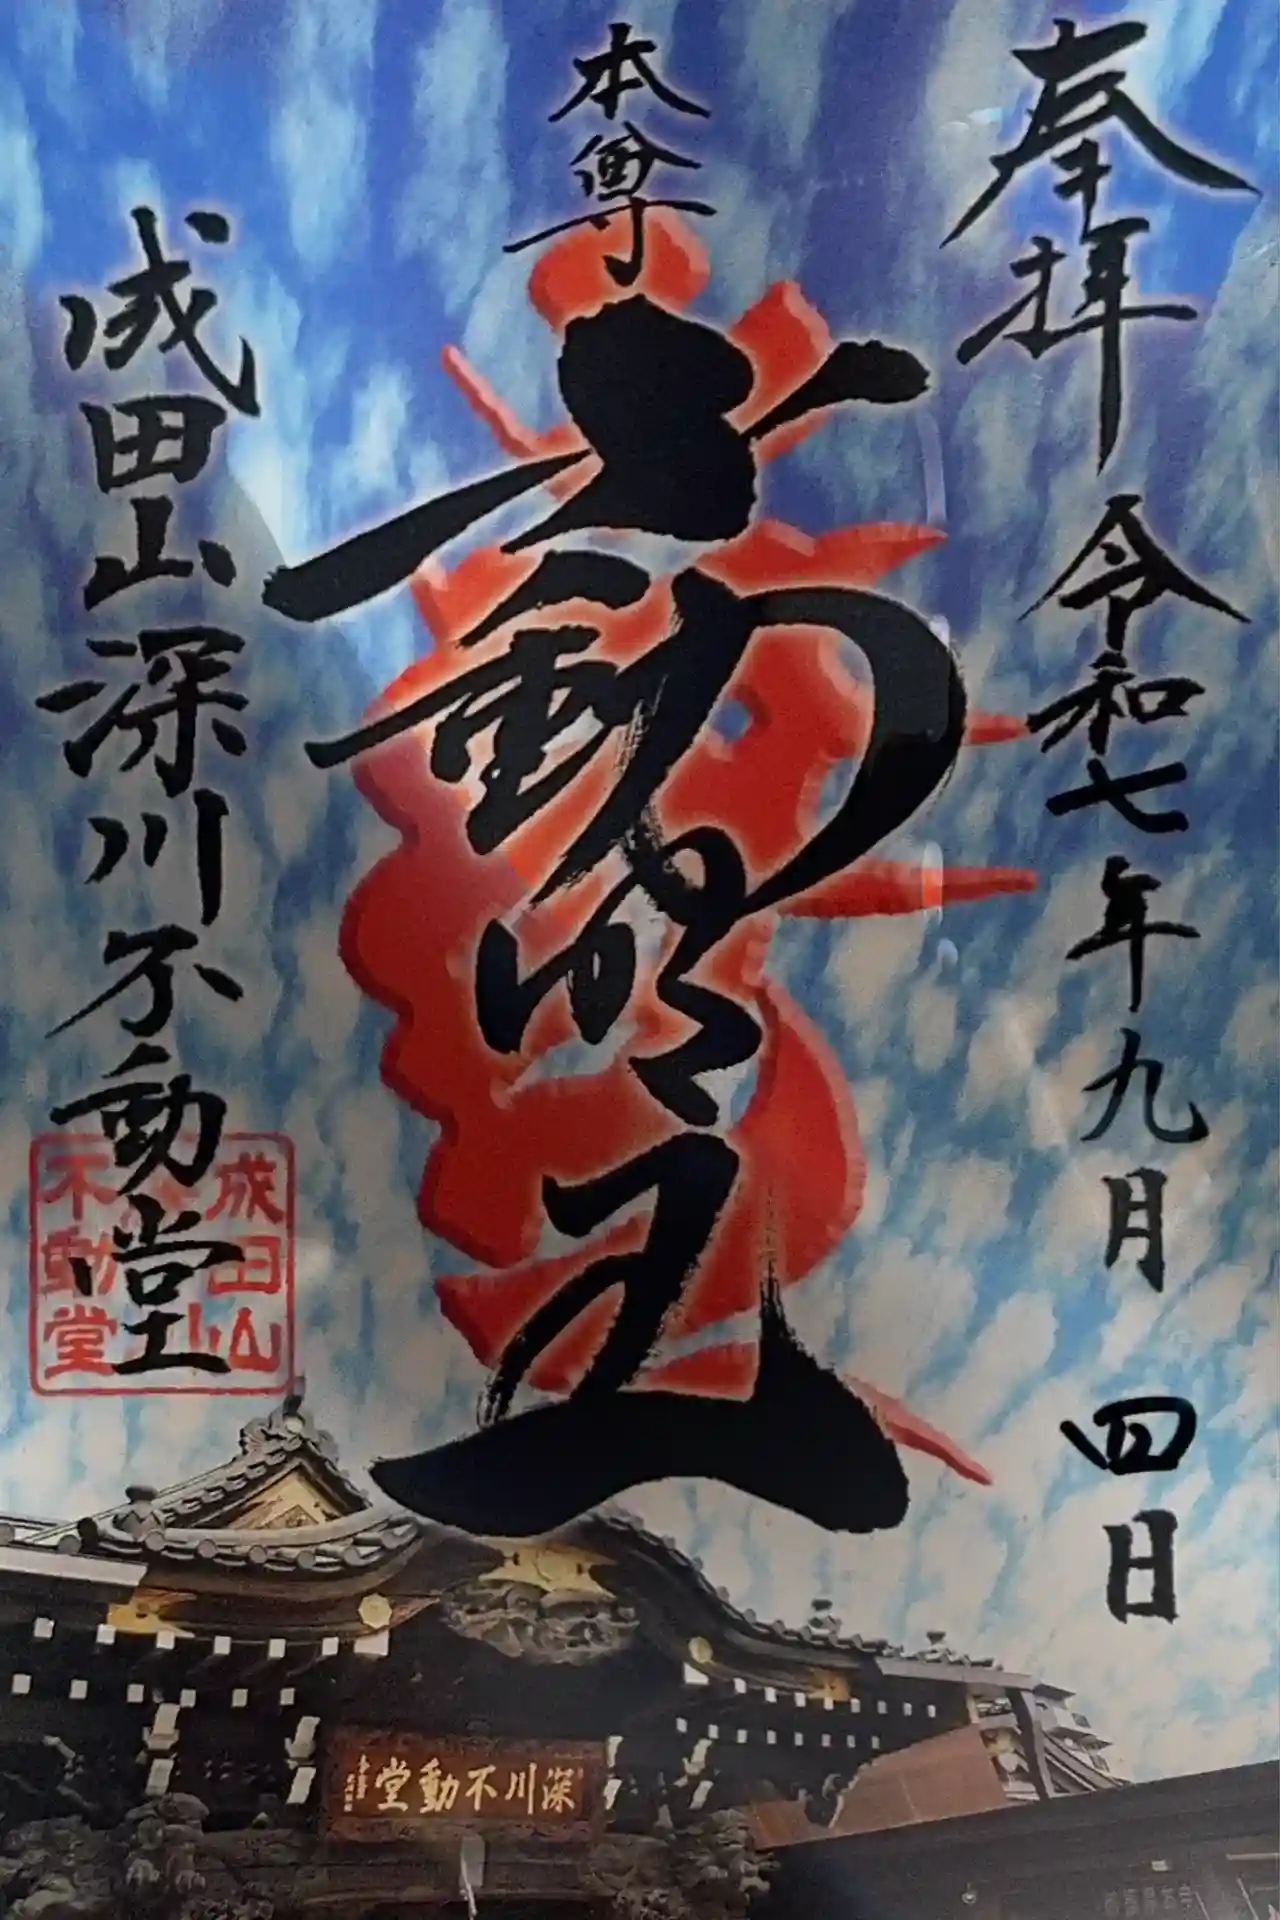 奉拝
令和七年九月四日
本尊
不動明王
成田山深川不動堂
成田山
不動堂
深川不動堂